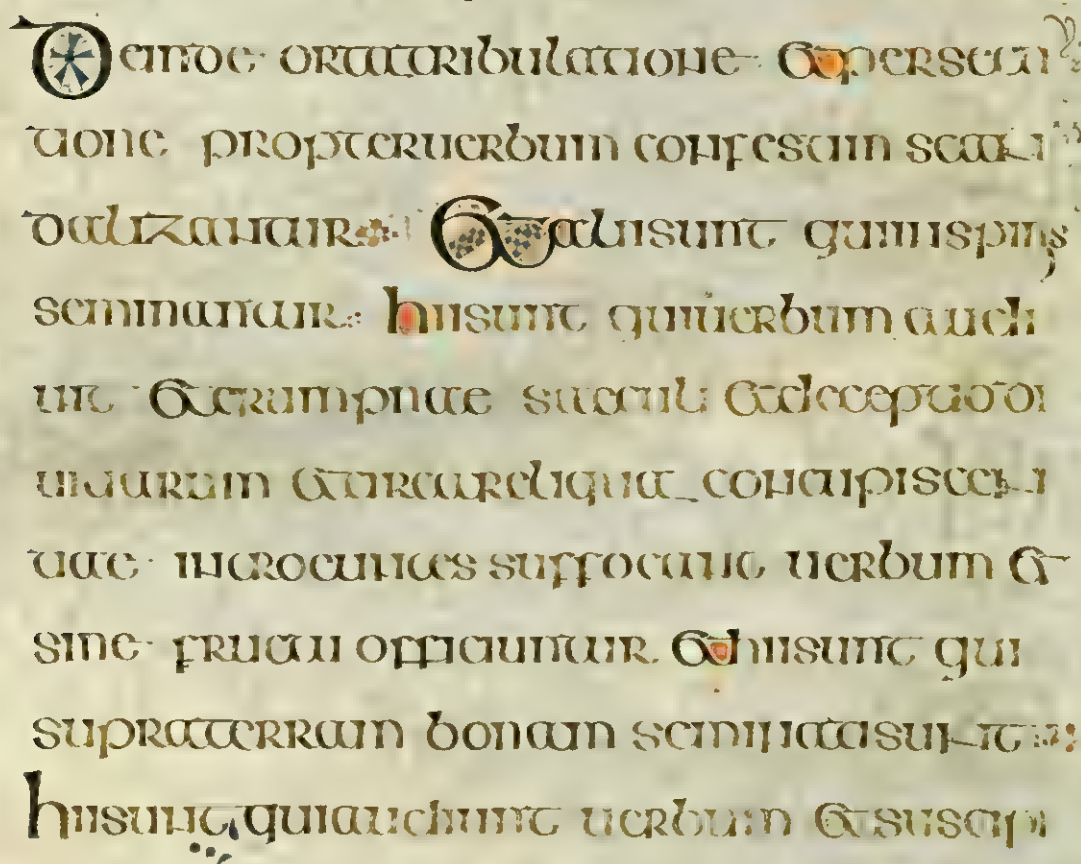 Deinde orta tribulatione et persecu
tione propter uerbum confestim scan
dalizantur Et alii sunt qui in spinis
seminantur hii sunt qui uerbum audi
unt et erumpnae saeculi et deceptio di
uitiarum et circa reliqua concupiscen
tiae introeuntes suffocant uerbum et
sine fructu efficiuntur et hii sunt qui
supra terram bonam seminati sunt
hii sunt qui audiunt uerbum et suscipi